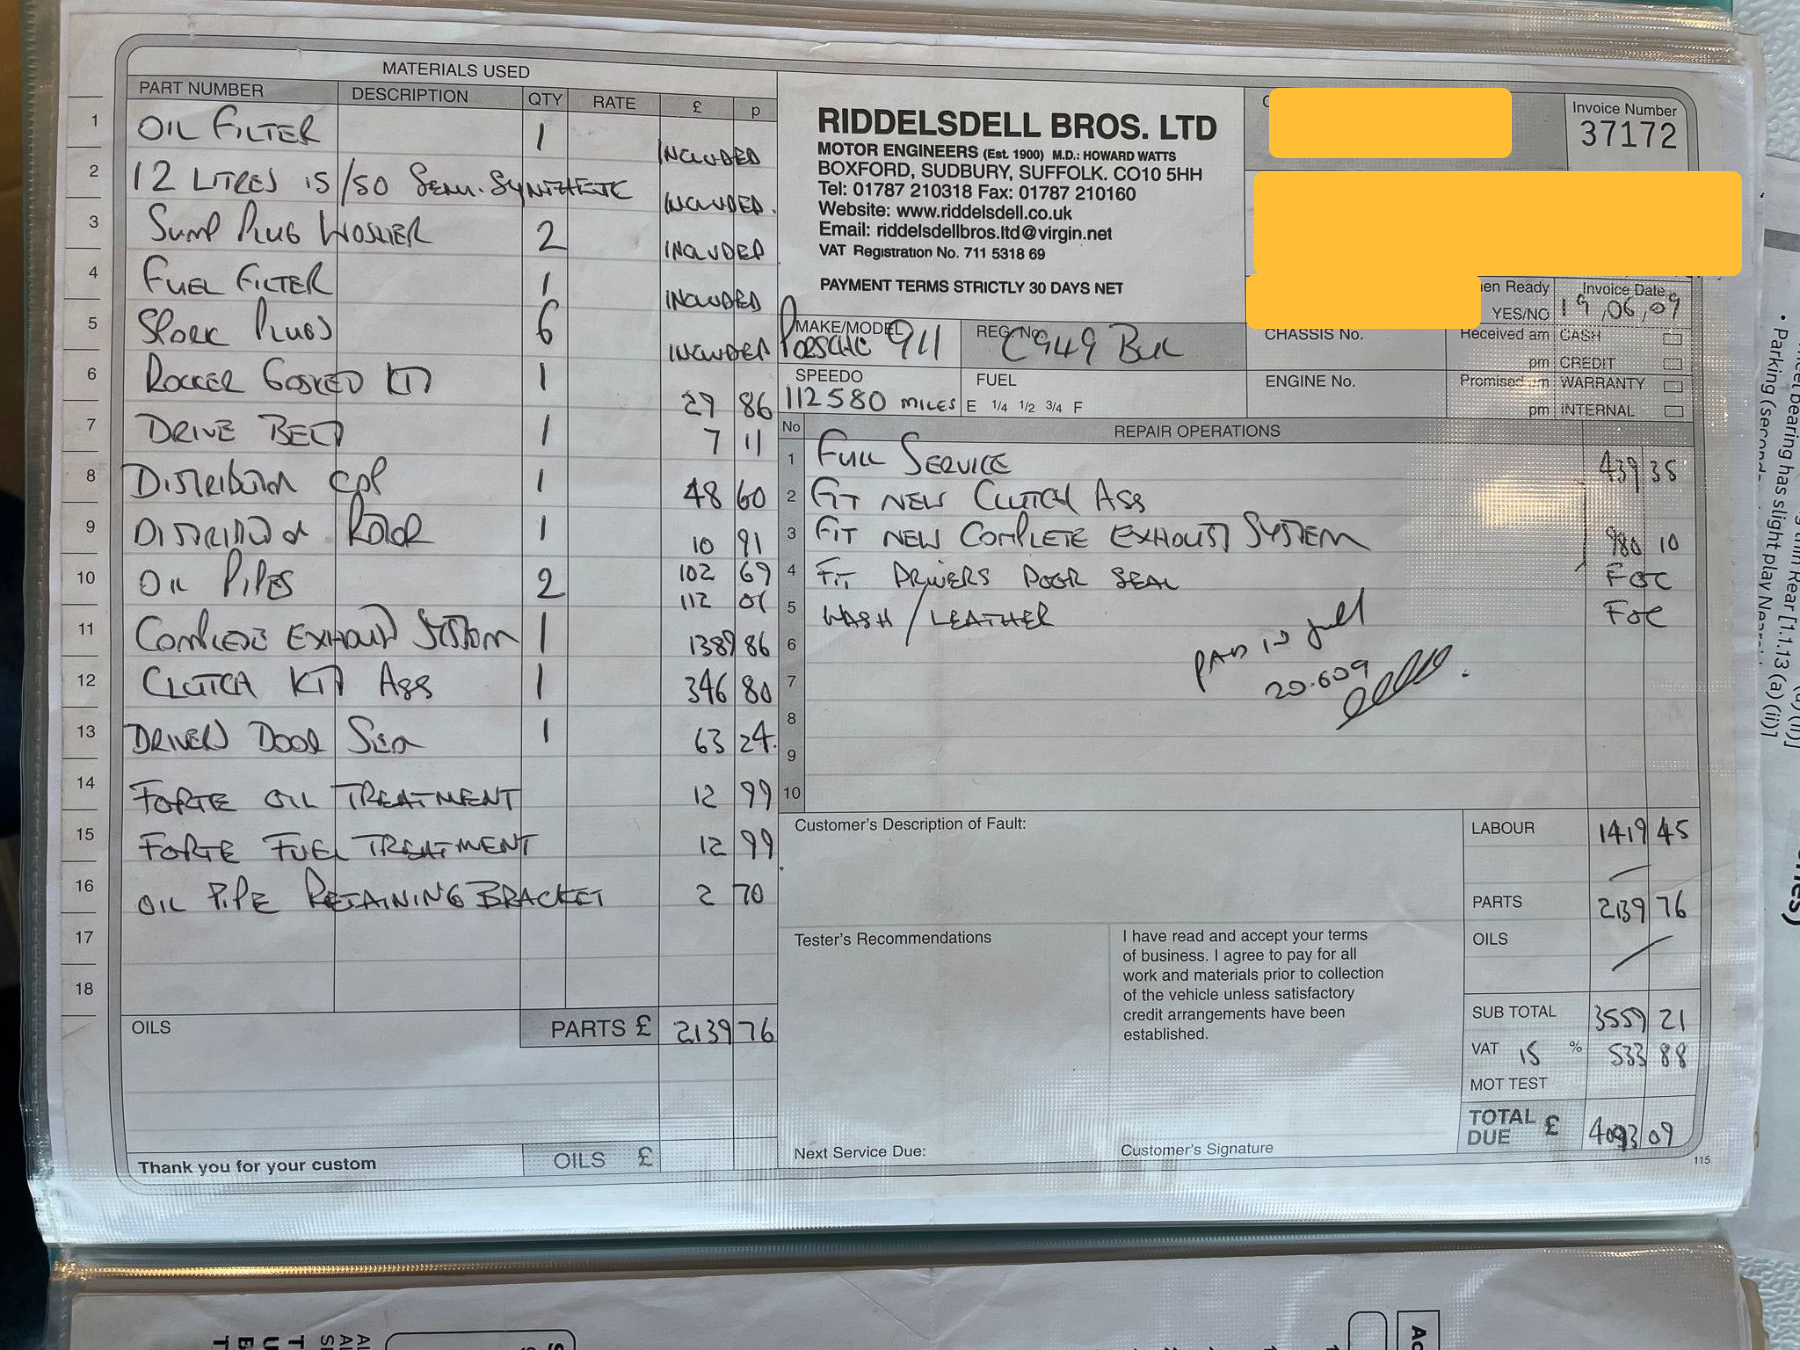 MATERIALS USED
PART NUMBER DESCRIPTION QTY RATE £ p
1 OIL FILTER 1 INCLUDED
2 12 LITRES 15/50 SEMI-SYNTHETIC INCLUDED.
3 SUMP PLUG WASHER 2 INCLUDED
4 FUEL FILTER 1 INCLUDED
5 SPARK PLUGS 6 INCLUDED
6 ROCKER GASKET KIT 1 29 86
7 DRIVE BELT 1 7 11
8 DISTRIBUTOR CAP 1 48 60
9 DISTRIBUTOR ROTOR 1 10 91
10 OIL PIPES 2 102 69
112 01
11 COMPLETE EXHAUST SYSTEM 1 1389 86
12 CLUTCH KIT ASS 1 346 80
13 DRIVERS DOOR SEAL 1 63 24
14 FORTE OIL TREATMENT 12 99
15 FORTE FUEL TREATMENT 12 99
16 OIL PIPE RETAINING BRACKET 2 70
17
18
OILS PARTS £ 2139 76
Thank you for your custom OILS £
RIDDELSDELL BROS. LTD
MOTOR ENGINEERS (Est. 1900) M.D.: HOWARD WATTS
BOXFORD, SUDBURY, SUFFOLK. CO10 5HH
Tel: 01787 210318 Fax: 01787 210160
Website: www.riddelsdell.co.uk
Email: riddelsdellbros.ltd@virgin.net
VAT Registration No. 711 5318 69
PAYMENT TERMS STRICTLY 30 DAYS NET
Invoice Number
37172
en Ready YES/NO
Invoice Date
19.06.09
MAKE/MODEL PORSCHE 911
REG. No. C949 BUL
CHASSIS No.
Received am CASH
pm CREDIT
SPEEDO 112580 MILES
FUEL E 1/4 1/2 3/4 F
ENGINE No.
Promised am WARRANTY
pm INTERNAL
No REPAIR OPERATIONS
1 FULL SERVICE 439 35
2 FIT NEW CLUTCH ASS
3 FIT NEW COMPLETE EXHAUST SYSTEM 980 10
4 FIT DRIVERS DOOR SEAL FOC
5 WASH / LEATHER FOC
6 PAID IN full
7 20.6 09
8
9
10
Customer's Description of Fault:
LABOUR 1419 45
PARTS 2139 76
OILS
SUB TOTAL 3559 21
VAT 15 % 533 88
MOT TEST
TOTAL DUE £ 4093 09
Tester's Recommendations
I have read and accept your terms
of business. I agree to pay for all
work and materials prior to collection
of the vehicle unless satisfactory
credit arrangements have been
established.
Next Service Due:
Customer's Signature
115
• Parking (second
has slight play
Rear [1.1.13 (a) (ii)]